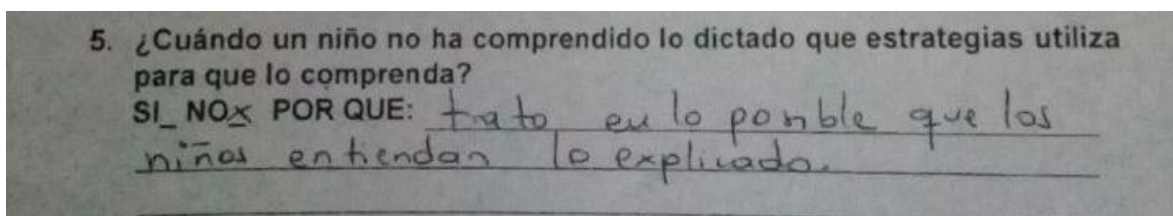 5. ¿Cuándo un niño no ha comprendido lo dictado que estrategias utiliza
para que lo comprenda?
SI_ NOX POR QUE: trato en lo posible que los
niños entiendan lo explicado.